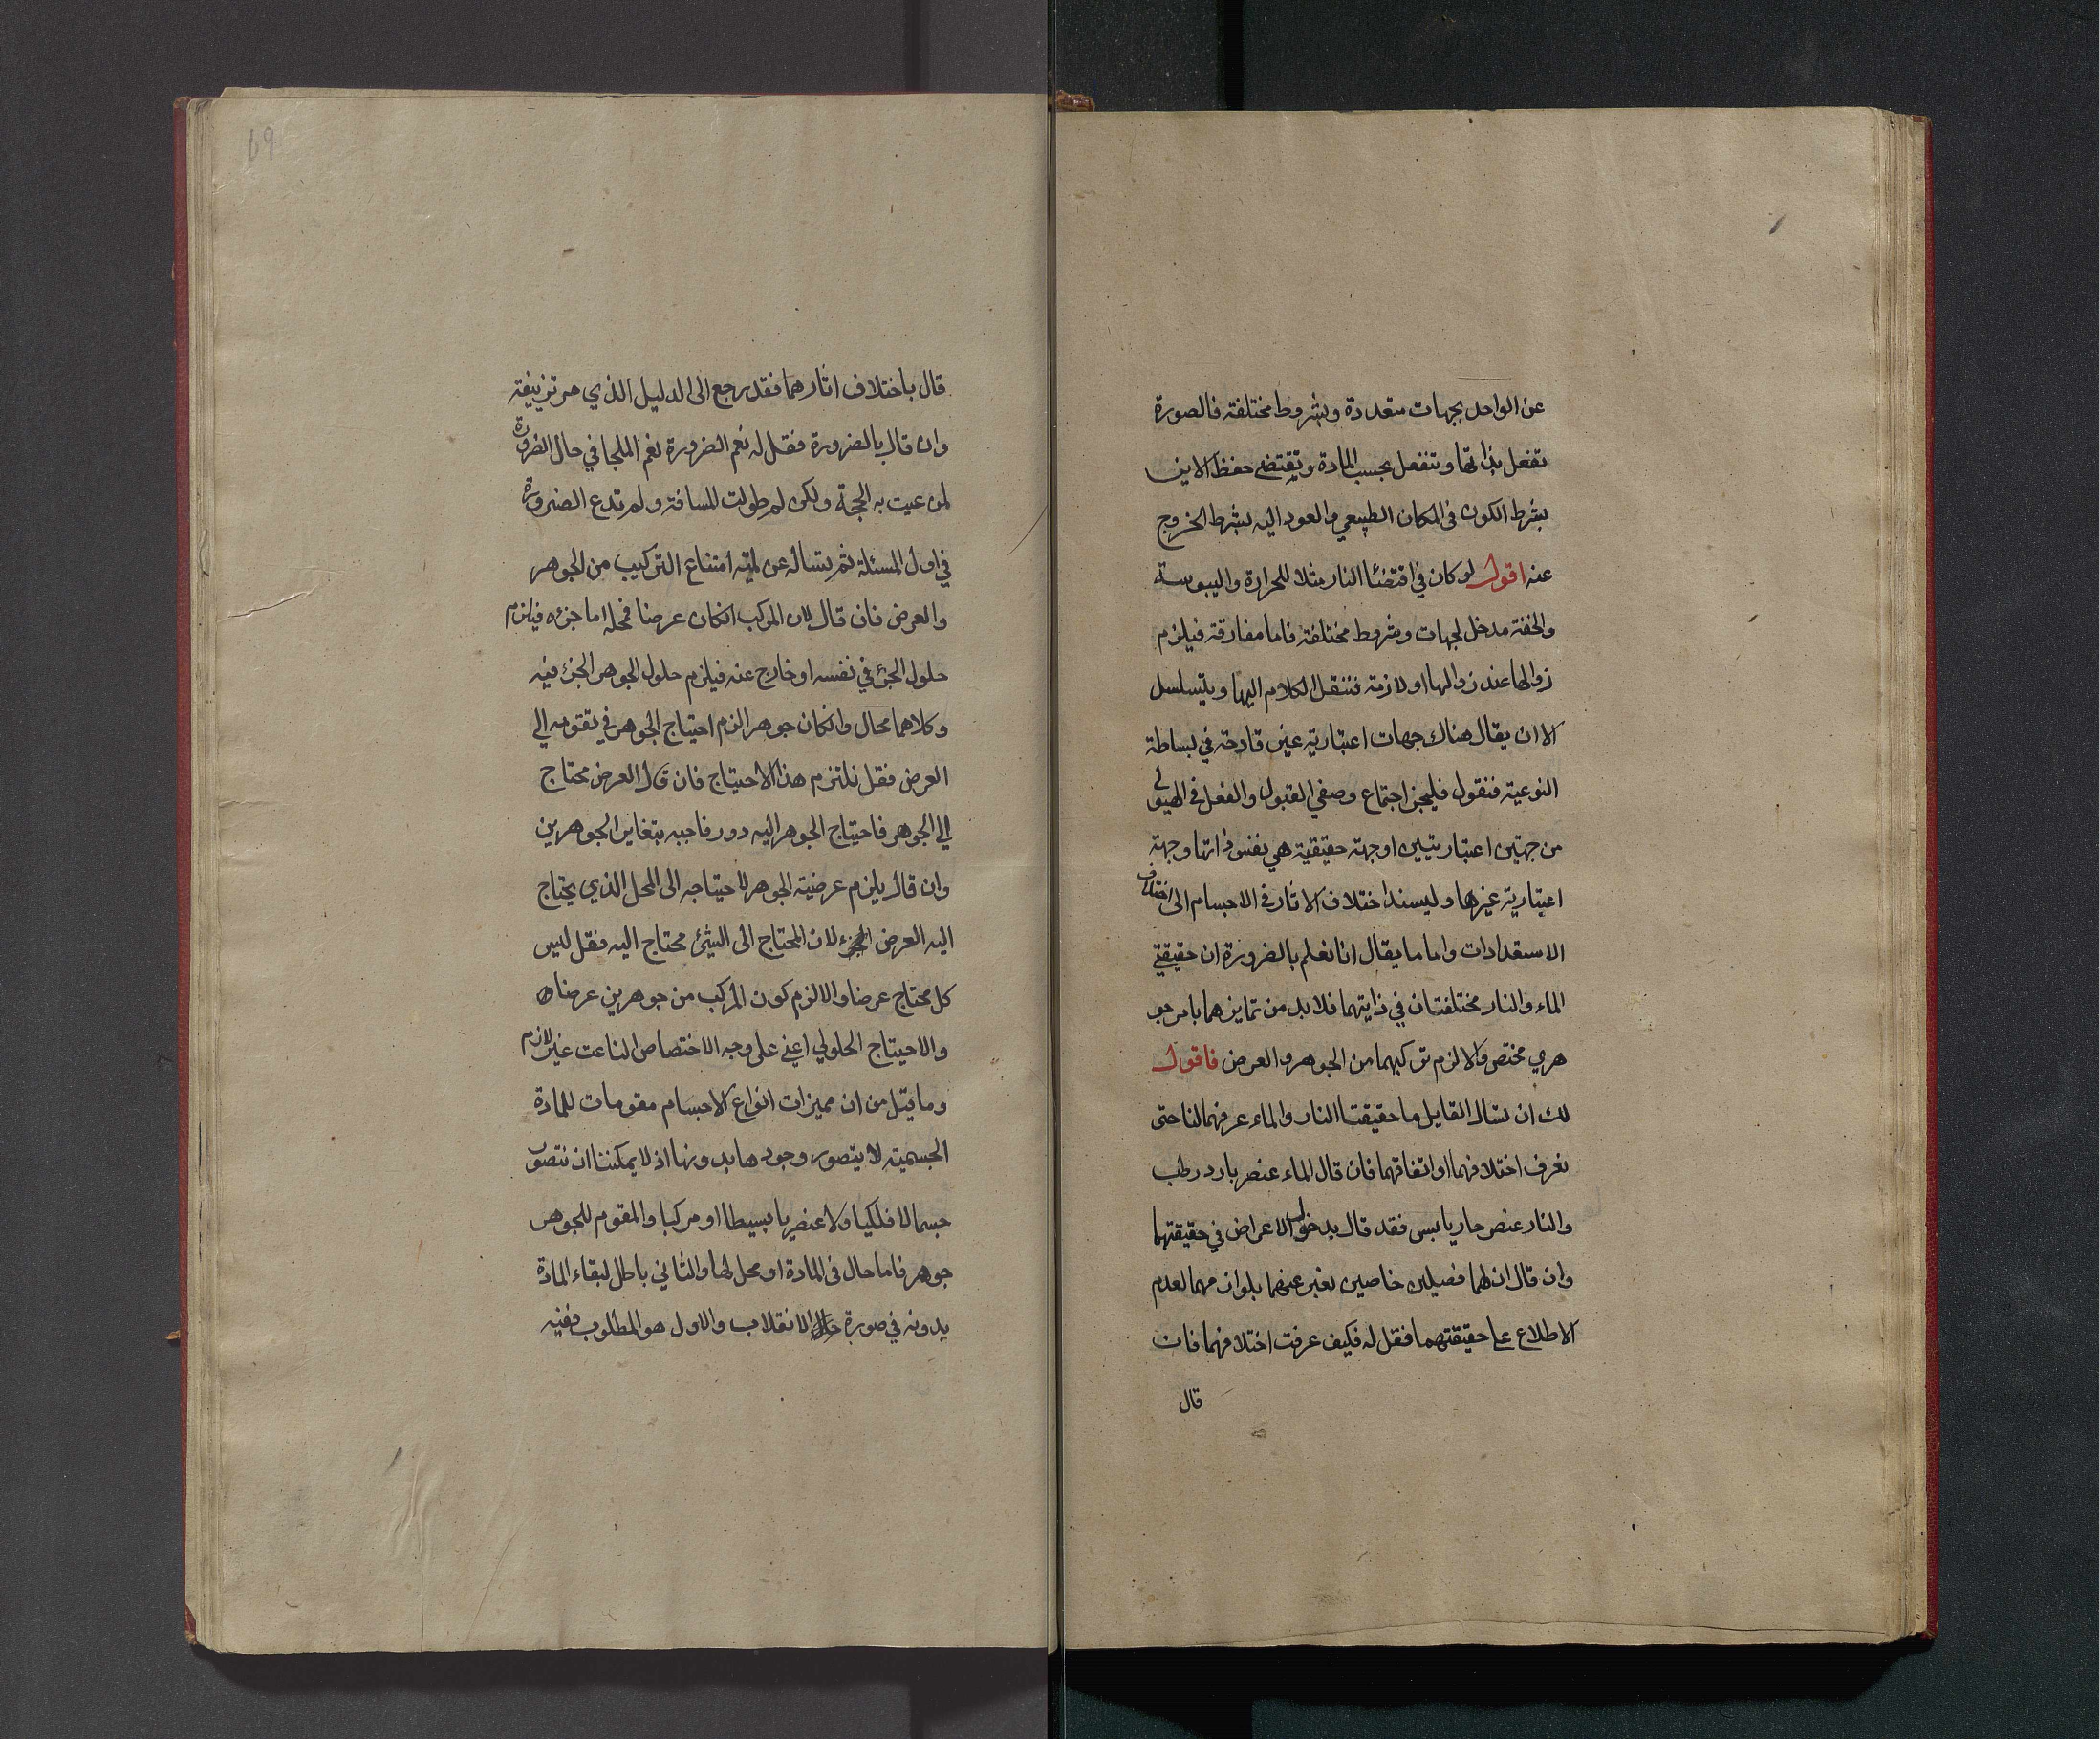 عن الواحد بجهات متعددة وبشروط مختلفة فالصورة
تفعل بذاتها وتنفعل بحسب المادة وتقتضي حفظ الاين
بشرط الكون في المكان الطبيعي والعود اليه بشرط الخروج
عنه اقول لو كان في اقتضئا النار مثلا للحرارة واليبوسة
والخفة مدخل لجهات وشروط مختلفة فاما مفارقة فيلزم
زوالها عند زوالها او لازمة فننقل الكلام اليها ويتسلسل
الا ان يقال هناك جهات اعتبارية غير قادحة في بساطة
النوعية فنقول فليجز اجتماع وصفي القبول والفعل في الهيولي
من جهتين اعتباريتين او جهة حقيقية هي نفس ذاتها وجهة
اعتبارية غيرها وليسند اختلاف الاثار في الاجسام الى اختلاف
الاستعدادات واما ما يقال انا نعلم بالضرورة ان حقيقتي
الماء والنار مختلفتان في ذاتيهما فلا بد من تمايزهما بامر جو
هري مختص والا لزم تركبهما من الجوهر والعرض فاقول
لك ان تسال القايل ما حقيقتا النار والماء عرفهما لنا حتى
نعرف اختلافهما او اتفاقهما فان قال الماء عنصر بارد رطب
والنار عنصر حار يابس فقد قال بدخول الاعراض في حقيقتهما
وان قال ان لهما فصلين خاصين نعبر عنهما بلوازمهما لعدم
الاطلاع على حقيقتهما فقل له فكيف عرفت اختلافهما فان
قال
69
قال باختلاف اثارهما فقد رجع الى الدليل الذي مر تزييفه
وان قال بالضرورة فقل له نعم الضرورة نعم الملجا في حال الضرورة
لمن عيت به الحجة ولكن لم طولت المسافة ولم تدع الضرورة
في اول المسئلة ثم نساله عن لمية امتناع التركيب من الجوهر
والعرض فان قال لان المركب انكان عرضا فمحله اما جزءه فيلزم
حلول الجزئ في نفسه او خارج عنه فيلزم حلول الجوهر الجزئ فيه
وكلاهما محال وانكان جوهرا لزم احتياج الجوهر في تقومه الي
العرض فقل نلتزم هذا الاحتياج فان قال العرض محتاج
الي الجوهر فاحتياج الجوهر اليه دور فاجبه بتغاير الجوهرين
وان قال يلزم عرضية الجوهر لاحتياجه الى المحل الذي يحتاج
اليه العرض الجزء لان المحتاج الى الشئ محتاج اليه فقل ليس
كل محتاج عرضا والا لزم كون المركب من جوهرين عرضا
والاحتياج الحلولي اعني على وجه الاختصاص الناعت غير لازم
وما قيل من ان مميزات انواع الاجسام مقومات للمادة
الجسمية لا يتصور وجودها بدونها اذ لا يمكننا ان نتصور
جسما لا فلكيا ولا عنصريا بسيطا او مركبا والمقوم للجوهر
جوهر فاما حال في المادة او محل لها والثاني باطل لبقاء المادة
بدونه في صورة الانقلاب والاول هو المطلوب ففيه